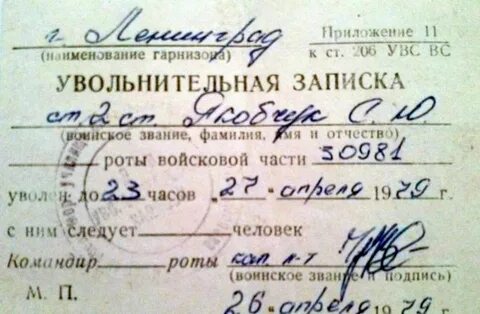 г. Ленинград
Приложение 11
(наименование гарнизона)
к ст. 206 УВС ВС
УВОЛЬНИТЕЛЬНАЯ ЗАПИСКА
ст 2 ст. Якобчук С. Ю
(воинское звание, фамилия, имя и отчество)
роты войсковой части 30981
уволен до 23 часов 27 апреля 1979 г.
с ним следует человек
Командир роты кап. л-т
(воинское звание и подпись)
М. П.
26 апреля 1979 г.